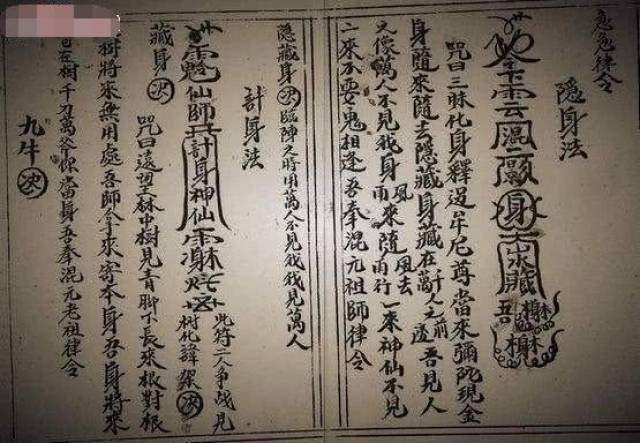 急急律令
隐身法
咒曰三昧化身釋迦牟尼尊當來彌陀現金
身隨來隨去隱藏身藏在千人之前
萬人
吾見人
又像萬人不見我身
風來隨風去
雨來隨雨行
一來神仙不見
二來不要鬼相逢吾奉混元祖師律令
隐藏身
臨陣之時用萬人不見我我見萬人
計身法
仙師
計身神仙
此符二人争战見
藏身
樹化諱架
咒曰遠望林中樹見青脚下長來根對根
樹將來無用處吾師令來寄本身吾身將來
在樹千刀萬斧你當身吾奉混元老祖律令
九牛